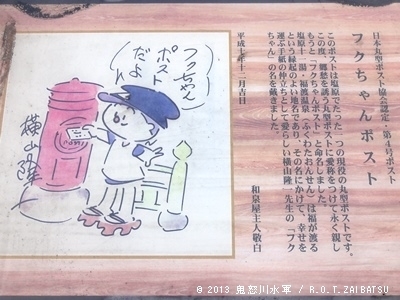 日本丸型ポスト協会認定 第4号ポスト
フクちゃんポスト
このポストは塩原でたった一つの現役の丸型ポストです。
この度、郷愁を誘う丸型ポストに愛称をつけて永く親し
もうと「フクちゃんポスト」と命名しました。
塩原十一湯・福渡温泉（ふくわたおんせん）は福が渡る
という縁起のよい地名であり、その名にかけて、幸せを
運ぶ手紙の仲立ちとして愛らしい横山隆一先生の「フク
ちゃん」の名を戴きました。
平成十年十二月吉日
和泉屋主人敬白
フクちゃん
ポスト
だよ
横山隆一
© 2013 鬼怒川水軍 / R.O.T.ZAIBATSU